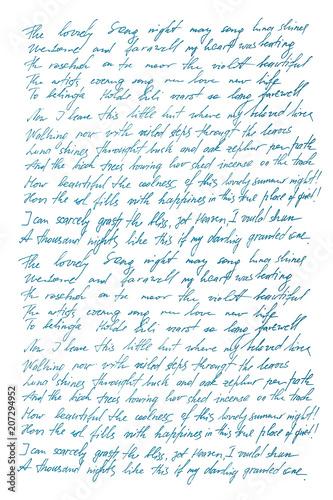 The lovely Song night may song lung shines
Welcome and farewell my heart was beating
the rosebud on the moor the violet beautiful
The artists evening song new love new life
To belinda Holds Lili worst so long farewell
Now I leave this little hut where my beloved lives
Walking now with veiled steps through the leaves
Luna shines through bush and oak zephyr per path
And the birch trees bowing low shed incense on the track
How beautiful the coolness of this lovely summer night!!
How the soul fills with happiness in this true place of quiet!
I can scarcely grasp the bliss, yet Heaven, I would shun
A thousand nights like this if my darling granted one.
The lovely Song night may song lung shines
Welcome and farewell my heart was beating
the rosebud on the moor the violet beautiful
The artists evening song new love new life
To belinda Holds Lili worst so long farewell
Now I leave this little hut where my beloved lives
Walking now with veiled steps through the leaves
Luna shines through bush and oak zephyr per path
And the birch trees bowing low shed incense on the track
How beautiful the coolness of this lovely summer night!!
How the soul fills with happiness in this true place of quiet!!
I can scarcely grasp the bliss, yet Heaven, I would shun
A thousand nights like this if my darling granted one.
Adobe Stock | #207294952